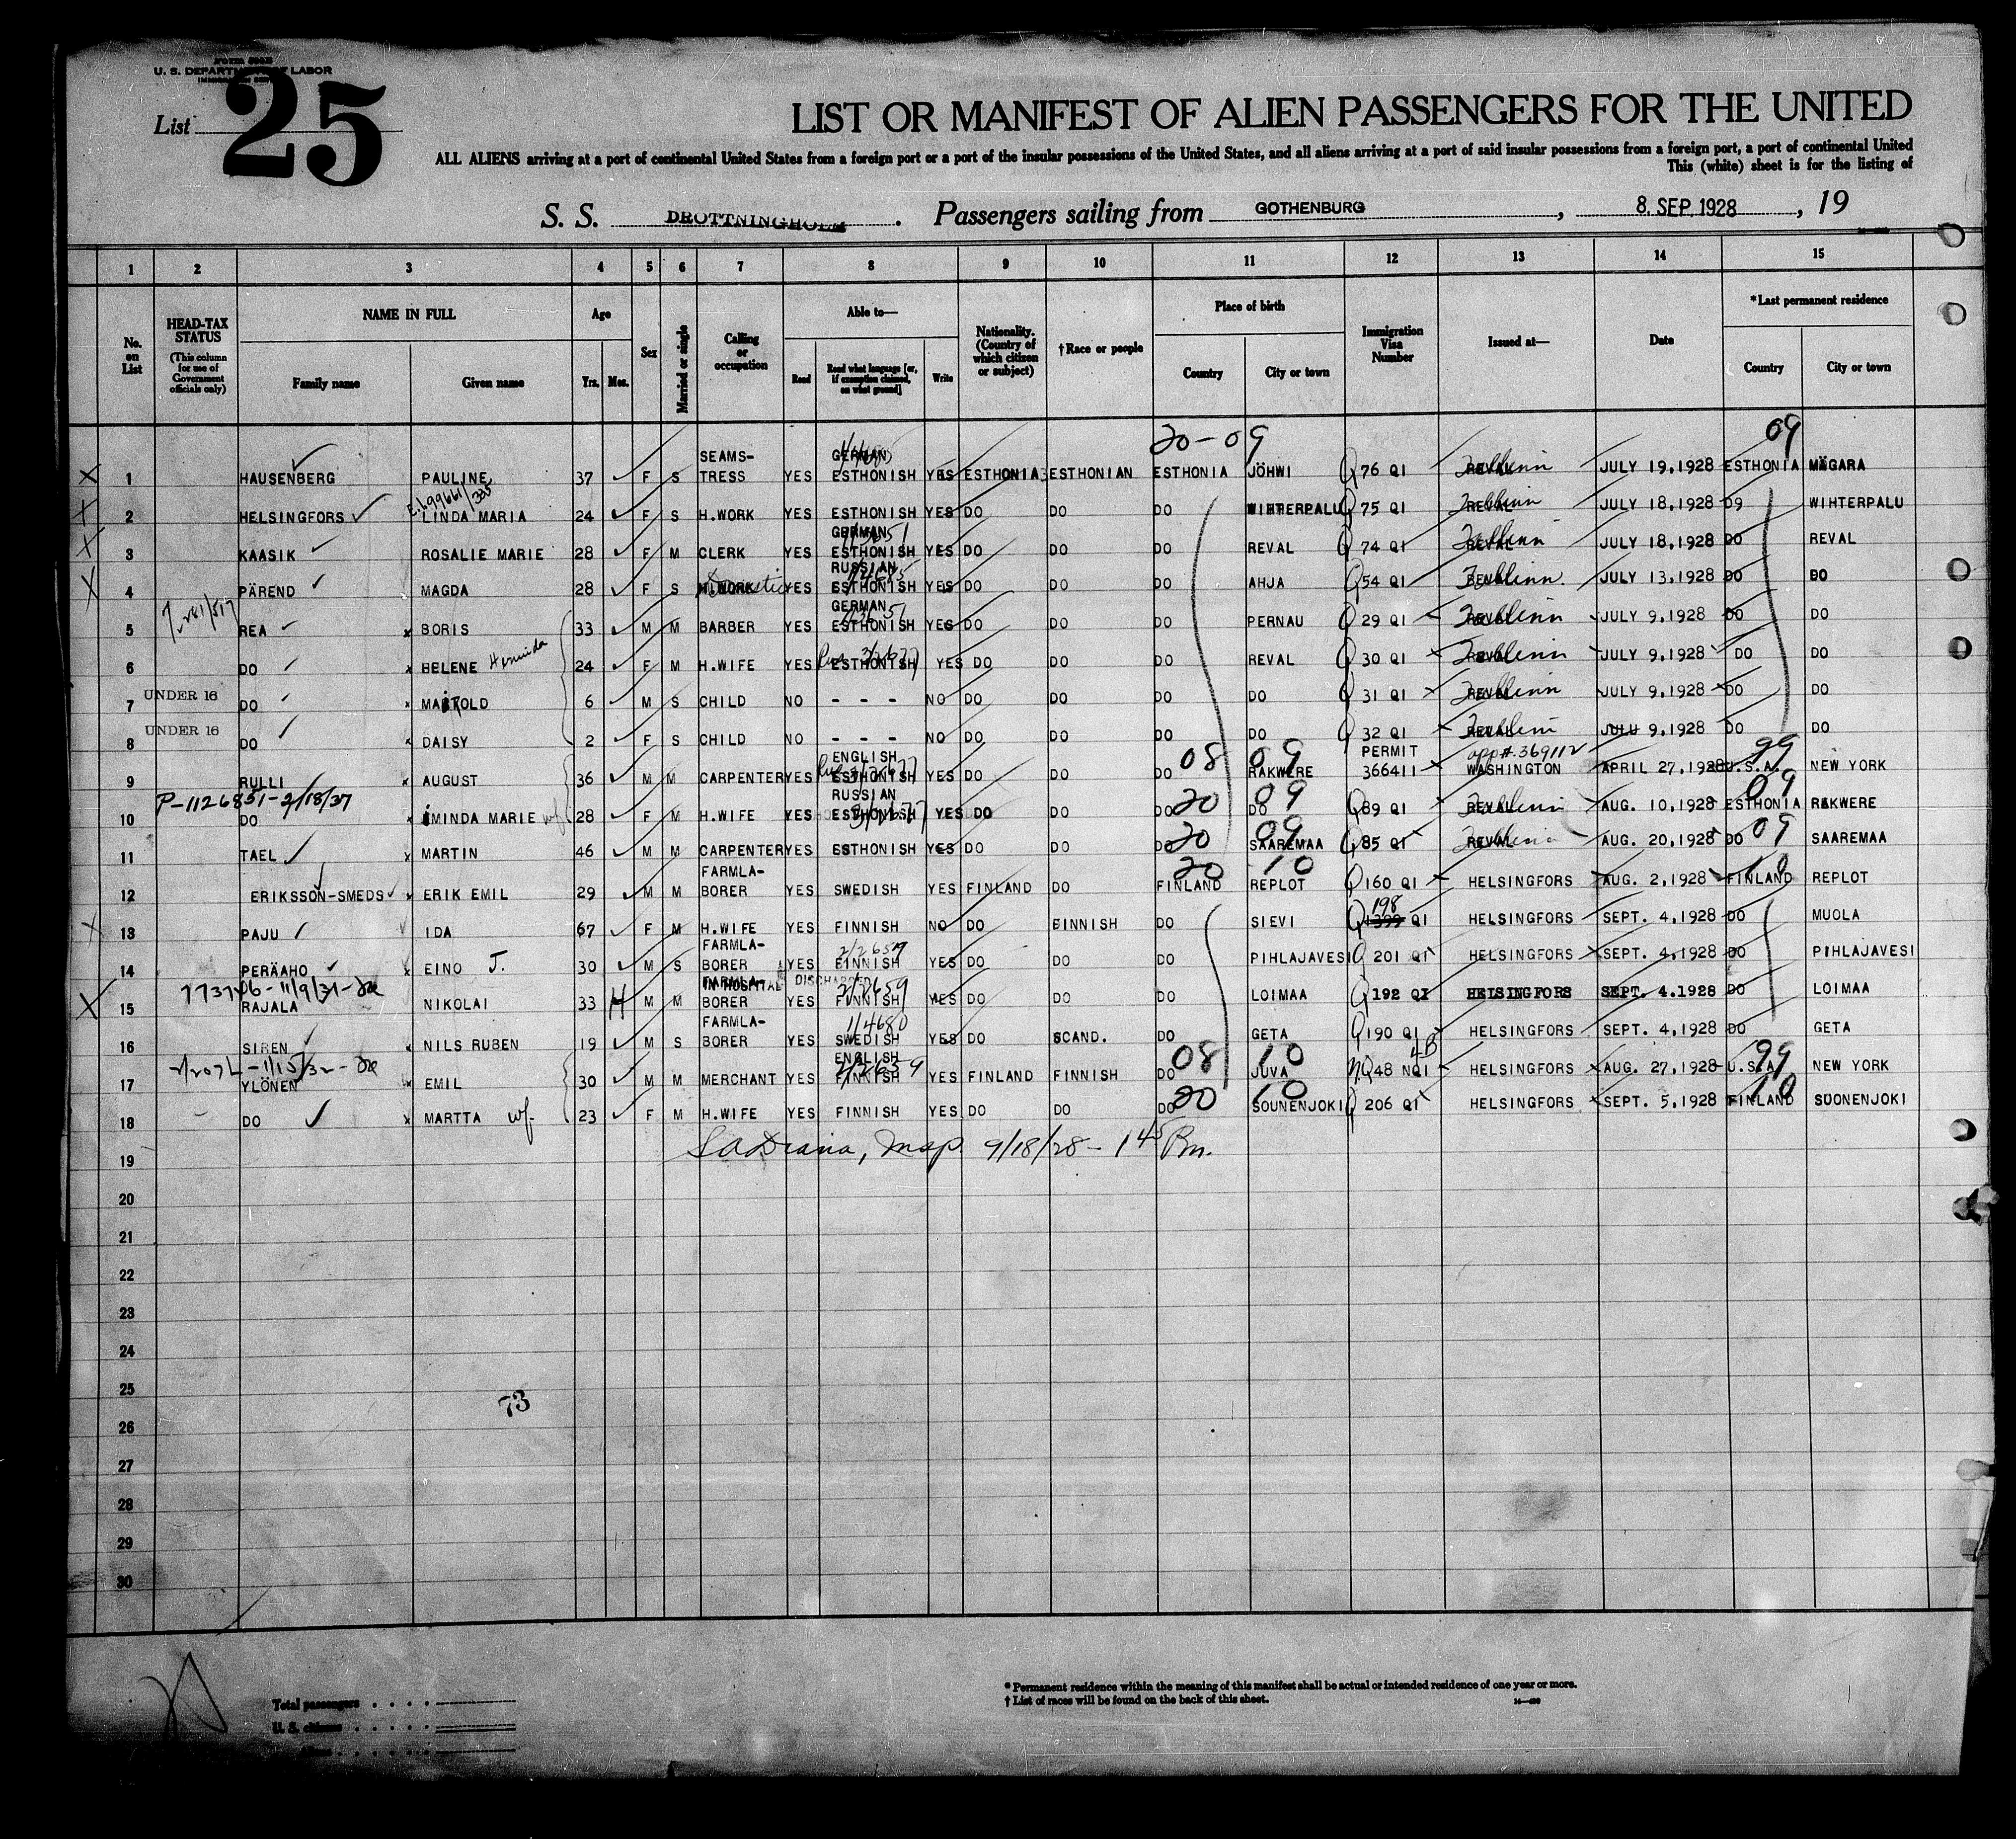 Form 500B
U. S. DEPARTMENT OF LABOR
List 25
LIST OR MANIFEST OF ALIEN PASSENGERS FOR THE UNITED
ALL ALIENS arriving at a port of continental United States from a foreign port or a port of the insular possessions of the United States, and all aliens arriving at a port of said insular possessions from a foreign port, a port of continental United
This (white) sheet is for the listing of
S. S. DROTTNINGHOLM. Passengers sailing from GOTHENBURG, 8. SEP. 1928, 19
1 2 3 4 5 6 7 8 9 10 11 12 13 14 15
No. on List
HEAD-TAX STATUS (This column for use of Government officials only)
NAME IN FULL Family name Given name
Age Yrs. Mos.
Sex
Married or single
Calling or occupation
Able to— Read Read what language [or, if exemption claimed, on what ground] Write
Nationality. (Country of which citizen or subject)
†Race or people
Place of birth Country City or town
Immigration Visa Number
Issued at—
Date
*Last permanent residence Country City or town
20-09 09
1 HAUSENBERG PAULINE 37 F S SEAMS-TRESS YES GERMAN ESTHONISH YES ESTHONIA ESTHONIAN ESTHONIA JÖHWI Q 76 QI REVAL Tallinn JULY 19,1928 ESTHONIA MÄGARA
2 HELSINGFORS LINDA MARIA 24 F S H.WORK YES ESTHONISH YES DO DO DO WIHTERPALU Q 75 QI REVAL Tallinn JULY 18,1928 DO WIHTERPALU
3 KAASIK ROSALIE MARIE 28 F M CLERK YES GERMAN ESTHONISH YES DO DO DO REVAL Q 74 QI REVAL Tallinn JULY 18,1928 DO REVAL
4 PÄREND MAGDA 28 F S H.WORK Domestic YES RUSSIAN ESTHONISH YES DO DO DO AHJA Q 54 QI REVAL Tallinn JULY 13,1928 DO DO
5 REA BORIS 33 M M BARBER YES GERMAN ESTHONISH YES DO DO DO PERNAU Q 29 QI REVAL Tallinn JULY 9,1928 DO DO
6 DO HELENE 24 F M H.WIFE YES ESTHONISH YES DO DO DO REVAL Q 30 QI REVAL Tallinn JULY 9,1928 DO DO
7 UNDER 16 DO 6 M S CHILD NO - - - NO DO DO DO DO Q 31 QI REVAL Tallinn JULY 9,1928 DO DO
8 UNDER 16 DO DAISY 2 F S CHILD NO - - - NO DO DO DO DO Q 32 QI REVAL Tallinn JULU 9,1928 DO DO
9 RULLI AUGUST 36 M M CARPENTER YES ENGLISH ESTHONISH YES DO DO DO 08 09 RAKWERE PERMIT 366411 app#.369112 WASHINGTON APRIL 27,1928 U.S.A. 99 NEW YORK
P-1126851-2/18/37
10 DO MINDA MARIE wf 28 F M H.WIFE YES RUSSIAN ESTHONISH YES DO DO DO 20 09 DO Q 89 QI REVAL Tallinn AUG. 10,1928 ESTHONIA 09 RAKWERE
11 TAEL MARTIN 46 M M CARPENTER YES ESTHONISH YES DO DO DO 20 09 SAAREMAA Q 85 QI REVAL Tallinn AUG. 20,1928 DO 09 SAAREMAA
12 ERIKSSON-SMEDS ERIK EMIL 29 M M FARMLA-BORER YES SWEDISH YES FINLAND DO FINLAND 20 10 REPLOT Q 160 QI HELSINGFORS AUG. 2,1928 FINLAND 10 REPLOT
13 PAJU IDA 67 F M H.WIFE YES FINNISH NO DO FINNISH DO SIEVI Q 198 1399 QI HELSINGFORS SEPT. 4,1928 DO MUOLA
14 PERÄAHO EINO J. 30 M S FARMLA-BORER YES FINNISH YES DO DO DO PIHLAJAVESI Q 201 QI HELSINGFORS SEPT. 4,1928 DO PIHLAJAVESI
IN HOSPITAL DISCHARGED
15 RAJALA NIKOLAI 33 H M M FARMLA-BORER YES FINNISH YES DO DO DO LOIMAA Q 192 QI HELSINGFORS SEPT. 4.1928 DO LOIMAA
16 SIREN NILS RUBEN 19 M S FARMLA-BORER YES 1/4680 SWEDISH YES DO SCAND. DO GETA Q 190 QI HELSINGFORS SEPT. 4,1928 DO GETA
17 YLÖNEN EMIL 30 M M MERCHANT YES ENGLISH FINNISH YES FINLAND FINNISH DO 08 10 JUVA NQ 48 NQI 4B HELSINGFORS AUG. 27,1928 U.S.A. 99 NEW YORK
18 DO MARTTA wf. 23 F M H.WIFE YES FINNISH YES DO DO DO 20 10 SOUNENJOKI Q 206 QI HELSINGFORS SEPT. 5,1928 FINLAND 10 SUONENJOKI
19 9/18/28 - 1 45 Pm.
20
21
22
23
24
25 73
26
27
28
29
30
Total passengers
U. S. citizens
* Permanent residence within the meaning of this manifest shall be actual or intended residence of one year or more.
† List of races will be found on the back of this sheet.